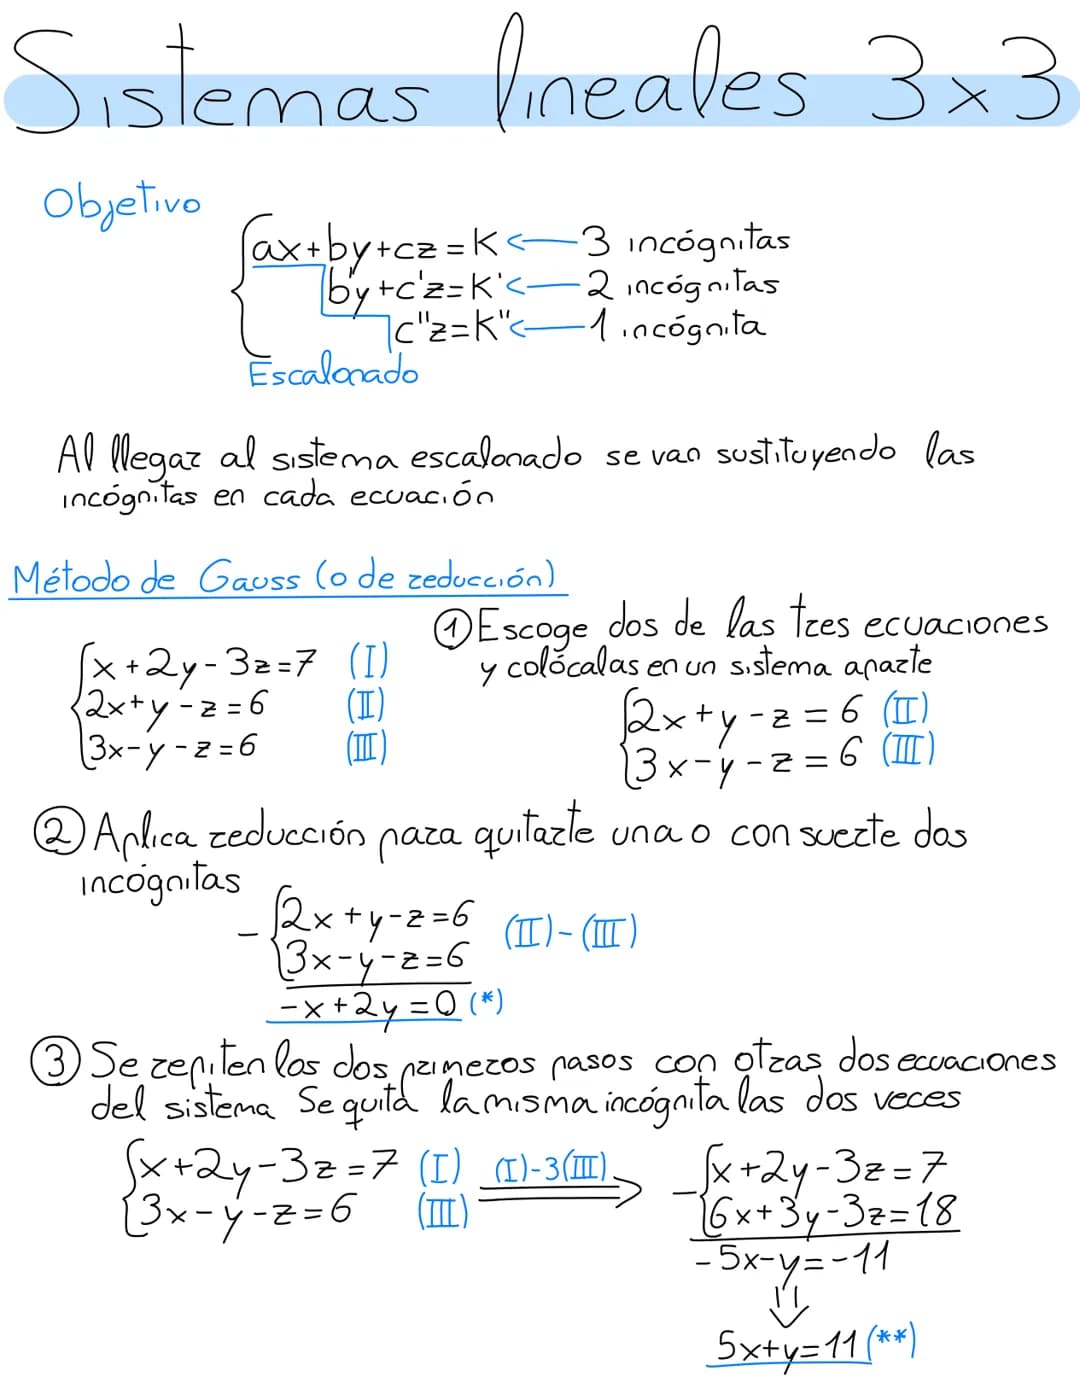 Sistemas lineales 3x3
Objetivo
ax+by+cz=K ← 3 incógnitas
b'y+c'z=K' ← 2 incógnitas
c"z=K" ← 1 incógnita
Escalonado
Al llegar al sistema escalonado se van sustituyendo las
incógnitas en cada ecuación
Método de Gauss (o de reducción)
x+2y-3z=7 (I)
2x+y-z=6 (II)
3x-y-z=6 (III)
① Escoge dos de las tres ecuaciones
y colócalas en un sistema aparte
2x+y-z=6 (II)
3x-y-z=6 (III)
② Aplica reducción para quitarte una o con suerte dos
incógnitas
- 2x+y-z=6 (II)-(III)
3x-y-z=6
-x+2y=0 (*)
③ Se repiten los dos primeros pasos con otras dos ecuaciones
del sistema Se quita la misma incógnita las dos veces
x+2y-3z=7 (I) (I)-3(III) ⇒
3x-y-z=6 (III)
- x+2y-3z=7
6x+3y-3z=18
-5x-y=-11
⇓
5x+y=11 (**)